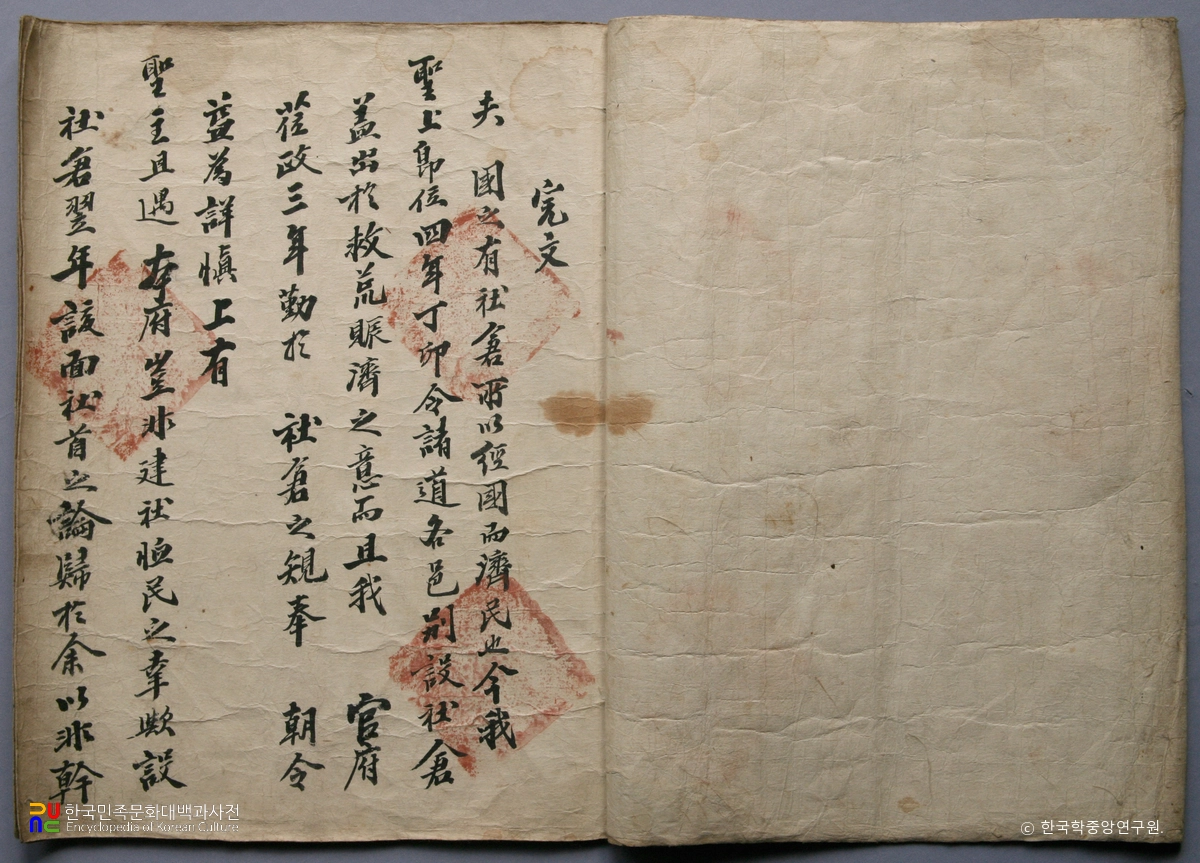 完文
夫 國之有社倉所以經國而濟民也今我
聖上卽位四年丁卯令諸道各邑別設社倉
盖出於救荒賑濟之意而且我 官府
莅政三年勤於 社倉之規奉 朝令
益爲詳愼上有
聖主且遇 本府豈非建社恤民之幸歟設
社倉翌年該面社首之論歸於余以非幹
한국민족문화대백과사전
Encyclopedia of Korean Culture
© 한국학중앙연구원.